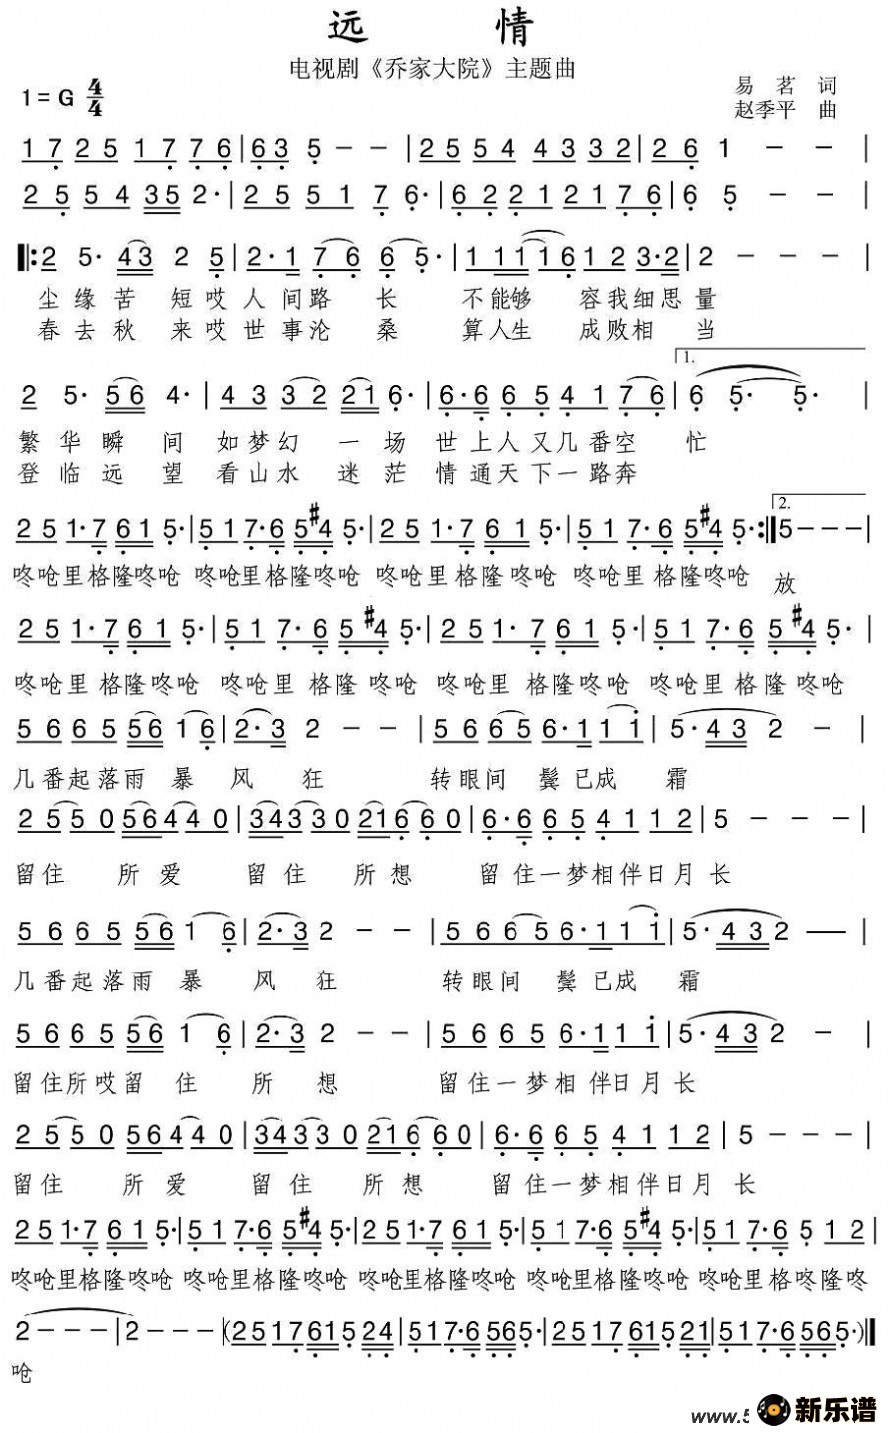 远 情
电视剧《乔家大院》主题曲
1=G 4/4
易 茗 词
赵季平 曲
1 7 2 5 1 7 7 6 | 6 3 5 – – | 2 5 5 4 4 3 3 2 | 2 6 1 – – |
2 5 5 4 3 5 2· | 2 5 5 1 7 6· | 6 2 2 1 2 1 7 6 | 6 5 – – |
|: 2 5· 4 3 2 5 | 2· 1 7 6 6 5· | 1 1 1 1 6 1 2 3·2 | 2 – – – |
尘 缘 苦 短 哎 人 间 路 长 不 能 够 容 我 细 思 量
春 去 秋 来 哎 世 事 沧 桑 算 人 生 成 败 相 当
1.
2 5· 5 6 4· | 4 3 3 2 2 1 6· | 6·6 6 5 4 1 7 6 | 6 5· 5· |
繁 华 瞬 间 如 梦 幻 一 场 世 上 人 又 几 番 空 忙
登 临 远 望 看 山 水 迷 茫 情 通 天 下 一 路 奔
2.
2 5 1·7 6 1 5· | 5 1 7·6 5 #4 5· | 2 5 1·7 6 1 5· | 5 1 7·6 5 #4 5· :| 5 – – – |
咚呛里格隆咚呛 咚呛里格隆咚呛 咚呛里格隆咚呛 咚呛里格隆咚呛 放
2 5 1·7 6 1 5· | 5 1 7·6 5 #4 5· | 2 5 1·7 6 1 5· | 5 1 7·6 5 #4 5· |
咚呛里格隆咚呛 咚呛里格隆咚呛 咚呛里格隆咚呛 咚呛里格隆咚呛
5 6 6 5 5 6 1 6 | 2·3 2 – – | 5 6 6 5 6·1 1 1 | 5·4 3 2 – |
几 番 起 落 雨 暴 风 狂 转 眼 间 鬓 已 成 霜
2 5 5 0 5 6 4 4 0 | 3 4 3 3 0 2 1 6 6 0 | 6·6 6 5 4 1 1 2 | 5 – – – |
留 住 所 爱 留 住 所 想 留 住 一 梦 相 伴 日 月 长
5 6 6 5 5 6 1 6 | 2·3 2 – – | 5 6 6 5 6·1 1 1 | 5·4 3 2 — |
几 番 起 落 雨 暴 风 狂 转 眼 间 鬓 已 成 霜
5 6 6 5 5 6 1 6 | 2·3 2 – – | 5 6 6 5 6·1 1 1 | 5·4 3 2 – |
留 住 所 哎 留 住 所 想 留 住 一 梦 相 伴 日 月 长
2 5 5 0 5 6 4 4 0 | 3 4 3 3 0 2 1 6 6 0 | 6·6 6 5 4 1 1 2 | 5 – – – |
留 住 所 爱 留 住 所 想 留 住 一 梦 相 伴 日 月 长
2 5 1·7 6 1 5· | 5 1 7·6 5 #4 5· | 2 5 1·7 6 1 5· | 5 1 7·6 5 #4 5· | 5 1 7·6 5 1 2 |
咚呛里格隆咚呛 咚呛里格隆咚呛 咚呛里格隆咚呛 咚呛里格隆咚呛 咚呛里格咚隆咚
2 – – – | 2 – – – | (2 5 1 7 6 1 5 2 4 | 5 1 7·6 5 6 5· | 2 5 1 7 6 1 5 2 1 | 5 1 7·6 5 6 5·) ||
呛
www.5
新乐谱